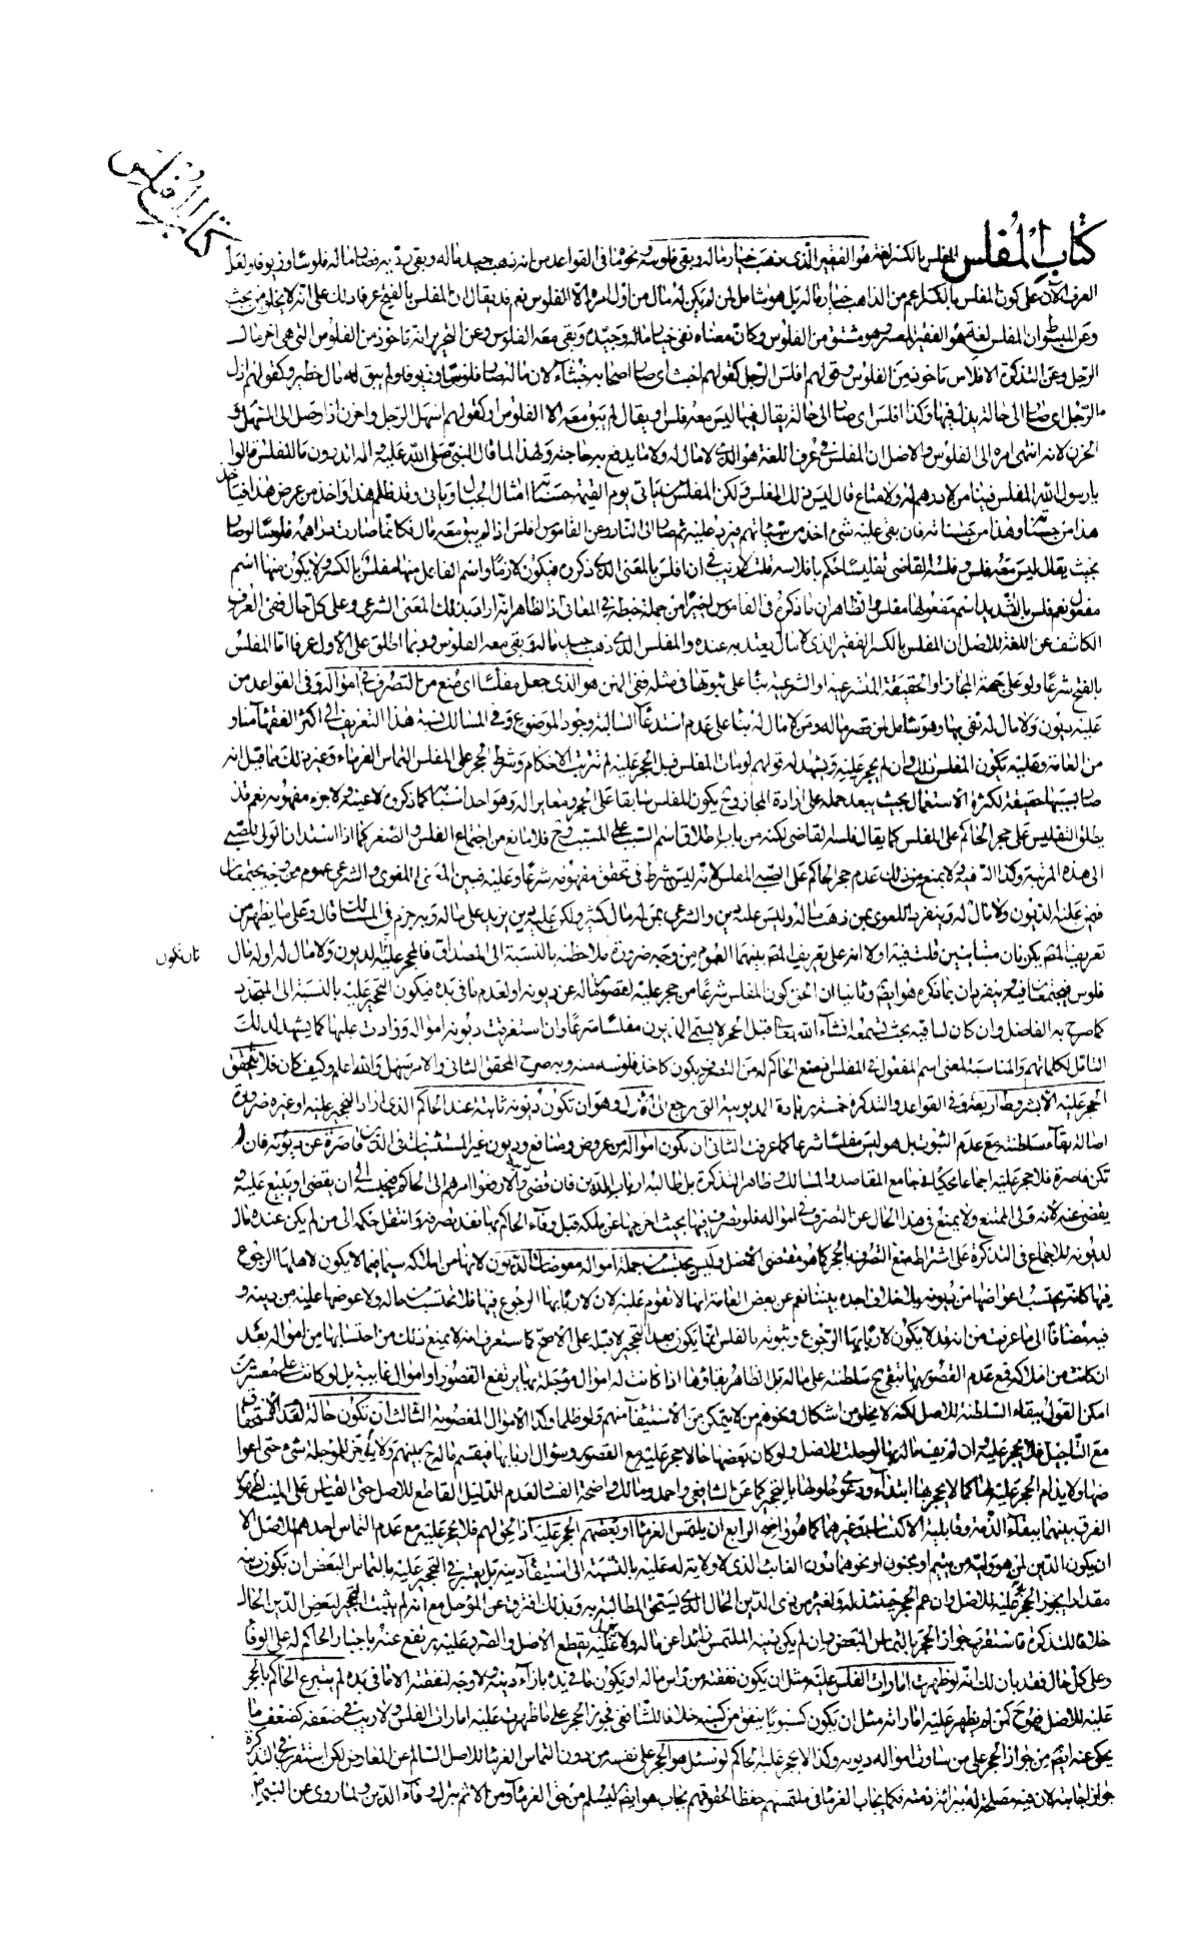 كتاب المفلس
كتاب المفلس المفلس بالكسر لغة هو الفقير الذي ذهب خيار ماله وبقي فلوسه ونحوه ما في القواعد من انه من ذهب جيد ماله وبقي رديه فصار ماله فلوسا وزيوفا ولعل
العرف الآن على كون المفلس بالكسر اعم من الذاهب خيار ماله بل هو شامل لمن لم يكن له مال من اول امره إلا الفلوس نعم قد يقال ان المفلس بالفتح عرفا دال على انه لا يخلو من بحث
وعن المبسوط ان المفلس لغة هو الفقير المعسر وهو مشتق من الفلوس وكان معناه نفى خيار ماله وجيده وبقى معه الفلوس وعن التحرير انه مأخوذ من الفلوس التي هي اخر مال
الرجل وعن التذكرة الافلاس مأخوذ من الفلوس وقولهم افلس الرجل كقولهم اخبث اي صار اصحابه خبثاء لان ماله صار فلوسا وزيوفا ولم يبق له مال خطير وكقولهم اذل
الرجل اي صار الى حالة يذل فيها وكذا افلس اي صار الى حالة يقال فيها ليس معه فلس او يقال لم يبق معه الا الفلوس او كقولهم اسهل الرجل واحزن اذا وصل الى السهل و
الحزن لانه انتهى امره الى الفلوس والاصل ان المفلس في عرف اللغة هو الذي لا مال له ولا ما يدفع به حاجته ولهذا لما قال النبي صلى الله عليه واله اتدرون ما المفلس قالوا
يا رسول الله المفلس فينا من لا درهم له ولا متاع قال ليس ذلك المفلس ولكن المفلس من يأتي يوم القيمة حسناته امثال الجبال ويأتي وقد ظلم هذا واخذ من عرض هذا فيأخذ
هذا من حسناته وهذا من حسناته فان بقى عليه شيء اخذ من سيئاتهم فيرد عليه ثم صار الى النار وعن القاموس افلس اذا لم يبق معه مال فكأنما صارت دراهمه فلوسا او صار
بحيث يقال ليس معه فلس وفلسه القاضي تفليسا حكم بافلاسه قلت لا ريب في ان افلس بالمعنى الذي ذكروه فيكون لازما واسم الفاعل منها مفلس بالكسر ولا يكون منها اسم
مفعول نعم فلس بالتشديد اسم مفعولها مفلس والظاهر ان ما ذكره في القاموس اخيرا من جملة خبطه في المعاني اذ الظاهر انه اراد بذلك المعنى الشرعي وعلى كل حال فمعنى العرف
الكاشف عن اللغة للاصل ان المفلس بالكسر الفقير الذي لا مال يعتد به عنده والمفلس الذي ذهب جيد ماله وبقي معه الفلوس وربما اطلق على الاول عرفا اما المفلس
بالفتح شرعا ولو على جهة المجاز او الحقيقة المتشرعية او الشرعية بناء على ثبوتها في مثله ففي المتن هو الذي جعل مفلسا اي منع من التصرف في امواله وفي القواعد من
عليه ديون ولا مال له تفي بها وهو شامل لمن قصر ماله ومن لا مال له بناء على عدم استدعاء السالبة وجود الموضوع وفي المسالك نسبة هذا التعريف الى اكثر الفقهاء منا و
من العامة وعليه يكون المفلس ذلك وان لم يحجر عليه ويشهد له قولهم لو مات المفلس قبل الحجر عليه لم تترتب الاحكام وشرط الحجر على المفلس التماس الغرماء وغير ذلك مما قيل انه
صار بسببها حقيقة لكثرة الاستعمال بحيث يبعد حمله على ارادة المجاز وح يكون للمفلس سابقا على الحجر ومغايرا له وهو احد اسبابه كما ذكروه لا عينه ولا جزء مفهومه نعم قد
يطلق التفليس على حجر الحاكم على المفلس كما يقال فلسه القاضي لكنه من باب اطلاق اسم السبب على المسبب وح فلا مانع من اجتماع الفلس والصغر كما اذا استدان الولي للصبي
الى هذه المرتبة وكذا السفيه ولا يمنع من ذلك عدم حجر الحاكم على الصبي المفلس لانه ليس شرطا في تحقق مفهومه شرعا وعليه فبين المعنى اللغوي والشرعي عموم من وجه يجتمعان
فيمن عليه الديون ولا مال له وينفرد اللغوي بمن ذهب ماله وليس عليه دين والشرعي بمن له مال كثير ولكن عليه دين يزيد على ماله وبه جزم في المسالك قال وعلى ما يظهر من
تعريف المص يكونان متباينين قلت فيه اولا انه على تعريف المص بينهما العموم من وجه ضرورة ملاحظته بالنسبة الى المصداق فالمحجر عليه لديون ولا مال له او له مال
تان يكون
فلوس فيجتمعان فيه وينفردان بما ذكره هو ايضا وثانيا ان الحق كون المفلس شرعا من حجر عليه لقصور ماله عن ديونه او لعدم ما في يده فيكون التحجير عليه بالنسبة الى المتجدد
كما صرح به الفاضل وان كان لنا فيه بحث تسمعه انشاء الله تعا قبل الحجر لا يسمى المديون مفلسا شرعا وان استغرقت ديونه امواله وزادت عليها كما يشهد لذلك
التأمل لكلماتهم والمناسبة لمعنى اسم المفعول في المفلس فمنع الحاكم له من التصرف يكون كاخذ فلوسه منه وبه صرح المحقق الثاني والامر سهل والله اعلم وكيف كان فلا يتحقق
الحجر عليه الا بشروط اربعة وفي القواعد والتذكرة خمسة بزيادة المديونية التي مرجع الى الاول وهو ان تكون ديونه ثابتة عند الحاكم الذي اراد التحجير عليه او غيره ضرورة
اصالة بقاء سلطنته مع عدم الثبوت بل هو ليس مفلسا شرعا كما عرفت الثاني ان تكون امواله من عروض ومنافع وديون غير المستثنيات في الدين قاصرة عن ديونه فان لم
تكن قاصرة فلا حجر عليه اجماعا محكيا في جامع المقاصد والمسالك وظاهر التذكرة بل طالبه ارباب الديون فان قضى والا رفعوا امرهم الى الحاكم فيحبسه الى ان يقضي او يبيع عليه و
يقضي عنه لانه ولي الممتنع ولا يمنع في هذا الحال عن التصرف في امواله فلو تصرف فيها بحيث اخرجها عن ملكه قبل وفاء الحاكم بها نفذ تصرفه وانتقل حكمه الى من لم يكن عنده مال
لديونه للاجماع في التذكرة على اشتراط منع التصرف بالحجر كما هو مقتضى الاصل وليس يحتسب من جملة امواله معوضات الديون لانها من املاكه سيما فيما لا يكون لاهلها الرجوع
فيها كما انه يحتسب اعواضها من ديونه بلا خلاف اجده بيننا نعم عن بعض العامة انها لا تقوم عليه لان لاربابها الرجوع فيها فلا تحتسب من ماله ولا عوضها عليه من دينه و
فيه مضافا الى ما عرفت من انه قد لا يكون لاربابها الرجوع وثبوته بالفلس انما يكون بعد التحجير لا قبله على الاصح كما ستعرف انه لا يمنع ذلك من احتسابها من امواله بعد
ان كانت من املاكه فمع عدم القصور بها تبقى ح سلطنته على ماله بل الظاهر بقاؤها اذا كانت له اموال مؤجلة بها يرتفع القصور او اموال غائبة بل لو كانت على معسر
امكن القول ببقاء السلطنة للاصل لكنه لا يخلو من اشكال ونحوهم من لا يتمكن من الاستيفاء منهم ولو ظلما وكذا الاموال المغصوبة الثالث ان تكون حالة لعدم الاستحقاق
مع التأجيل فلا يحجر عليه وان لم يف ماله بها لو حلت للاصل ولو كان بعضها حالا حجر عليه مع القصور وسؤال اربابها فيقسم ماله ح بينهم ولا يدخر للمؤجلة شيء حتى اعوا
ضها ولا يدام الحجر عليه لها كما لا يحجر بها ابتداء ودعوى حلولها بالحجر كما عن الشافعي واحمد ومالك واضحة الفساد لعدم الدليل القاطع للاصل حتى القياس على الميت لظهور
الفرق بينهما ببقاء الذمة وقابلية الاكتساب وغيرهما كما هو واضح الرابع ان يلتمس الغرماء او بعضهم الحجر عليه اذ الحق لهم فلا يحجر عليه مع عدم التماس احدهم للاصل الا
ان يكون الدين لمن هو وليه من يتيم او مجنون او نحوهما دون الغائب الذي لا ولاية له عليه بالنسبة الى استيفاء دينه بل يعتبر في التحجير عليه بالتماس البعض ان يكون دينه
مقدارا يجوز الحجر عليه للاصل وان عم الحجر حينئذ له ولغيره من ذي الدين الحال الذي يستحق المطالبة به وبذلك افترق عن المؤجل مع انه لم يثبت التحجير لبعض الدين الحال
خلافا للتذكرة فاستقرب جواز الحجر بالتماس البعض وان لم يكن دينه الملتمس زائدا عن ماله ولا دليل عليه يقطع الاصل والضرر عليه يرتفع عنه باجبار الحاكم له على الوفاء
وعلى كل حال فقد بان لك انه لو ظهرت امارات الفلس عليه مثل ان يكون نفقته من رأس ماله او يكون ما في يده بازاء دينه ولا وجه لنفقته الا ما في يده لم يتبرع الحاكم بالحجر
عليه للاصل فضلا عمن لم يظهر عليه اماراته مثل ان يكون كسوبا ينفق من كسبه خلافا للشافعي فجوز الحجر على ما ظهرت عليه امارات الفلس ولا ريب في ضعفه كضعف ما
يحكى عنه ايضا من جواز الحجر على من ساوت امواله ديونه وكذا لا يحجر عليه الحاكم لو سئل هو الحجر على نفسه من دون التماس الغرماء للاصل السالم عن المعارض لكن استقرب في التذكرة
جواز اجابته لان فيه مصلحة له ببراءة ذمته فكما يجاب الغرماء في ملتمسهم حفظا لحقوقهم يجاب هو ايضا ليسلم من حق الغرماء ومن الاثم بترك وفاء الدين ولما روى عن النبي ص